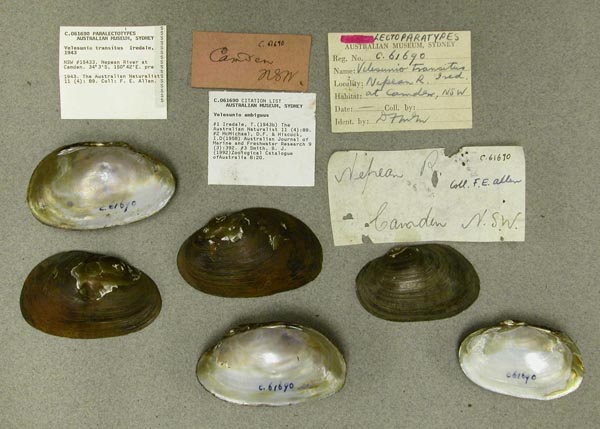 C.061690 PARALECTOTYPES
AUSTRALIAN MUSEUM, SYDNEY
Velesunio transitus Iredale,
1943
NSW #18433. Nepean River at
Camden. 34°3'S, 150°42'E. pre
1943. The Australian Naturalist
11 (4): 89. Coll: F. E. Allen.
C.61690
Camden
NSW.
C.061690 CITATION LIST
AUSTRALIAN MUSEUM, SYDNEY
Velesunio ambiguus
#1 Iredale, T.(1943b) The
Australian Naturalist 11 (4):89.
#2 McMichael, D.F. & Hiscock,
I.D(1958) Australian Journal of
Marine and Freshwater Research 9
(3):392. #3 Smith, B. J.
(1992)Zoological Catalogue
ofAustralia 8:20.
LECTOPARATYPES
AUSTRALIAN MUSEUM, SYDNEY
Reg. No. C.61690
Name: Velesunio transitus
Locality: Nepean R. Ired.
Habitat: at Camden, NSW
Date: — Coll. by:
Ident. by:
C.61690
Nepean R.
Coll. F. E. Allen
Camden N.S.W.
C.61690
C.61690
C.61690